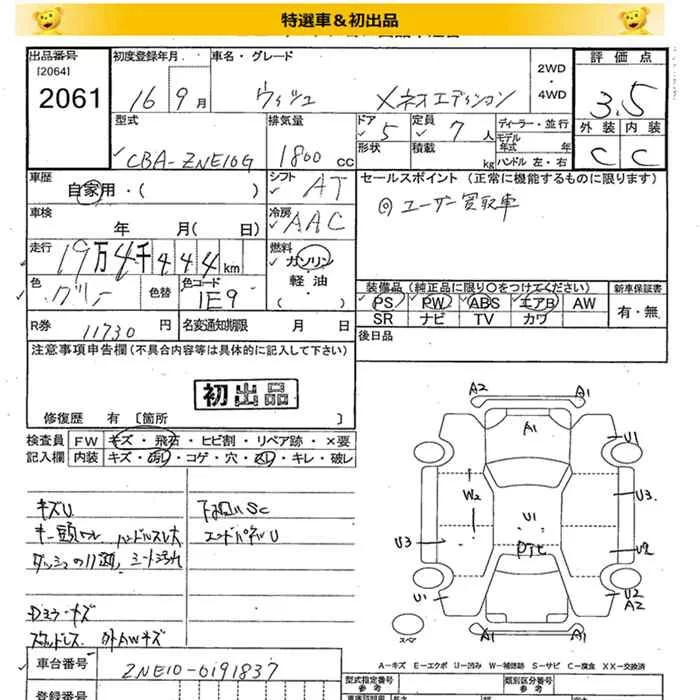 特選車&初出品
出品番号
[2064]
2061
初度登録年月
16 9月
車名・グレード
ウィッシュ Xネオエディション
2WD
・
4WD
評価点
3.5
外装 内装
C C
型式
CBA-ZNE10G
排気量
1800 cc
ドア
5
定員
7人
形状
積載
kg
ディーラー・並行
モデル年式 年
ハンドル 左・右
車歴
自家用・( )
シフト
AT
セールスポイント (正常に機能するものに限ります)
◎ユーザー買取車
車検
年 月( 日)
冷房
AAC
走行
19万4千444km
燃料
ガソリン
・
軽油
色
グリー
色替
色コード
1E9
装備品(純正品に限り○をつけてください)
PS PW ABS エアB AW
SR ナビ TV カワ
新車保証書
有・無
R券 11730円
名変通知期限 月 日
後日品
注意事項申告欄(不具合内容等は具体的に記入して下さい)
初出品
修復歴 有 〔箇所 〕
検査員
記入欄
FW キズ・飛石・ヒビ割・リペア跡・×要
内装 キズ・汚れ・コゲ・穴・スレ・キレ・破レ
キズU
下回りSC
エンドパネルU
キー頭ワレ ハンドルスレ大
シート汚れ
ドミラーキズ
スタッドレス 外AWキズ
A2 A1
A1
U1
W2
U3
U1
U3
U2
U1
U2
A2
A1 A1
スペア
A-キズ E-エクボ U-凹み W-補修跡 S-サビ C-腐食 XX-交換済
車台番号 ZNE10-0191837
登録番号
型式指定番号
参考
類別区分番号
参考